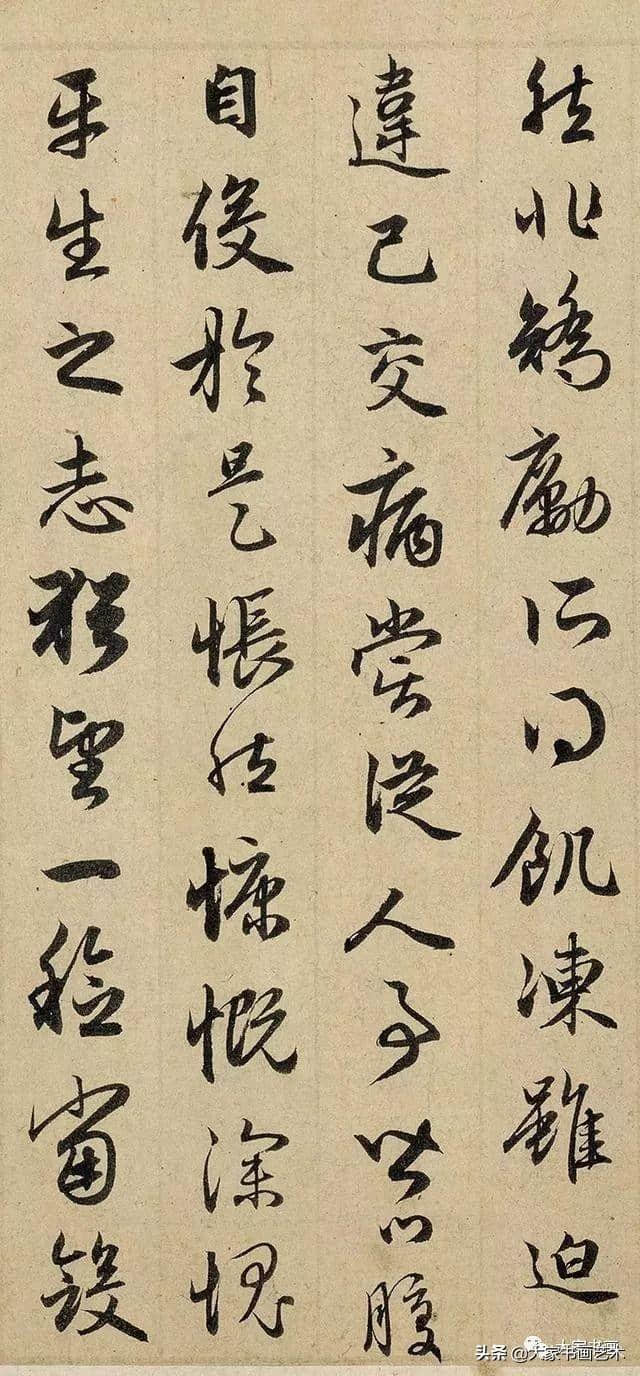 然非矯勵所得飢凍雖迫
違己交病嘗從人事皆口腹
自役於是悵然慷慨深愧
平生之志猶望一稔當斂
头条 @大家书画艺术